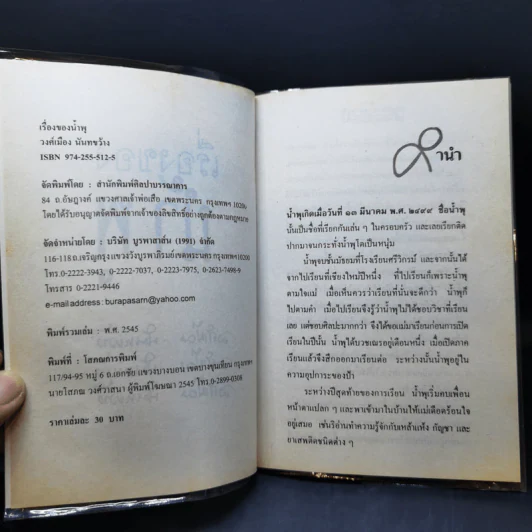 เรื่องของน้ำพุ
วงศ์เมือง นันทขว้าง
ISBN 974-255-512-5
จัดพิมพ์โดย : สำนักพิมพ์ศิลปาบรรณาคาร
84 ถ.อัษฎางค์ แขวงศาลเจ้าพ่อเสือ เขตพระนคร กรุงเทพฯ 10200
โดยได้รับอนุญาตจัดพิมพ์จากเจ้าของลิขสิทธิ์อย่างถูกต้องตามกฎหมาย
จัดจำหน่ายโดย : บริษัท บูรพาสาส์น (1991) จำกัด
116-118 ถ.เจริญกรุง แขวงวังบูรพาภิรมย์ เขตพระนคร กรุงเทพฯ 10200
โทร.0-2222-3943, 0-2222-7037, 0-2223-7975, 0-2623-7498-9
โทรสาร 0-2221-9446
e-mail address : burapasarn@yahoo.com
พิมพ์รวมเล่ม : พ.ศ. 2545
พิมพ์ที่ : โสภณการพิมพ์
117/94-95 หมู่ 6 ถ.เอกชัย แขวงบางบอน เขตบางขุนเทียน กรุงเทพฯ
นายโสภณ วงศ์วาสนา ผู้พิมพ์โฆษณา 2545 โทร.0-2899-0308
ราคาเล่มละ 30 บาท
คำนำ
น้ำพุเกิดเมื่อวันที่ ๑๓ มีนาคม พ.ศ. ๒๔๙๙ ชื่อน้ำพุ
นั้นเป็นชื่อที่เรียกกันเล่น ๆ ในครอบครัว และเลยเรียกติด
ปากมาจนกระทั่งน้ำพุโตเป็นหนุ่ม
น้ำพุจบชั้นมัธยมที่โรงเรียนศรีวิกรม์ และจากนั้นได้
จากไปเรียนที่เชียงใหม่ปีหนึ่ง ที่ไปเรียนก็เพราะน้ำพุ
ตามใจแม่ เมื่อเห็นควรว่าเรียนที่นั่นจะดีกว่า น้ำพุก็
ไปตามคำ เมื่อไปเรียนจึงรู้ว่าน้ำพุไม่ได้ชอบวิชาที่เรียน
เลย แต่ชอบศิลปะมากกว่า จึงได้ขอแม่มาเรียนก่อนการเปิด
เรียนในปีนั้น น้ำพุได้บวชเณรอยู่เดือนหนึ่ง เมื่อเปิดภาค
เรียนแล้วจึงสึกออกมาเรียนต่อ ระหว่างนั้นน้ำพุอยู่ใน
ความอุปการะของป้า
ระหว่างปีสุดท้ายของการเรียน น้ำพุเริ่มคบเพื่อน
หน้าตาแปลก ๆ และพาเข้ามาในบ้านให้แม่เดือดร้อนใจ
อยู่เสมอ เช่นริอ่านทำความรู้จักกับเหล้าแห้ง กัญชา และ
ยาเสพติดชนิดต่าง ๆ